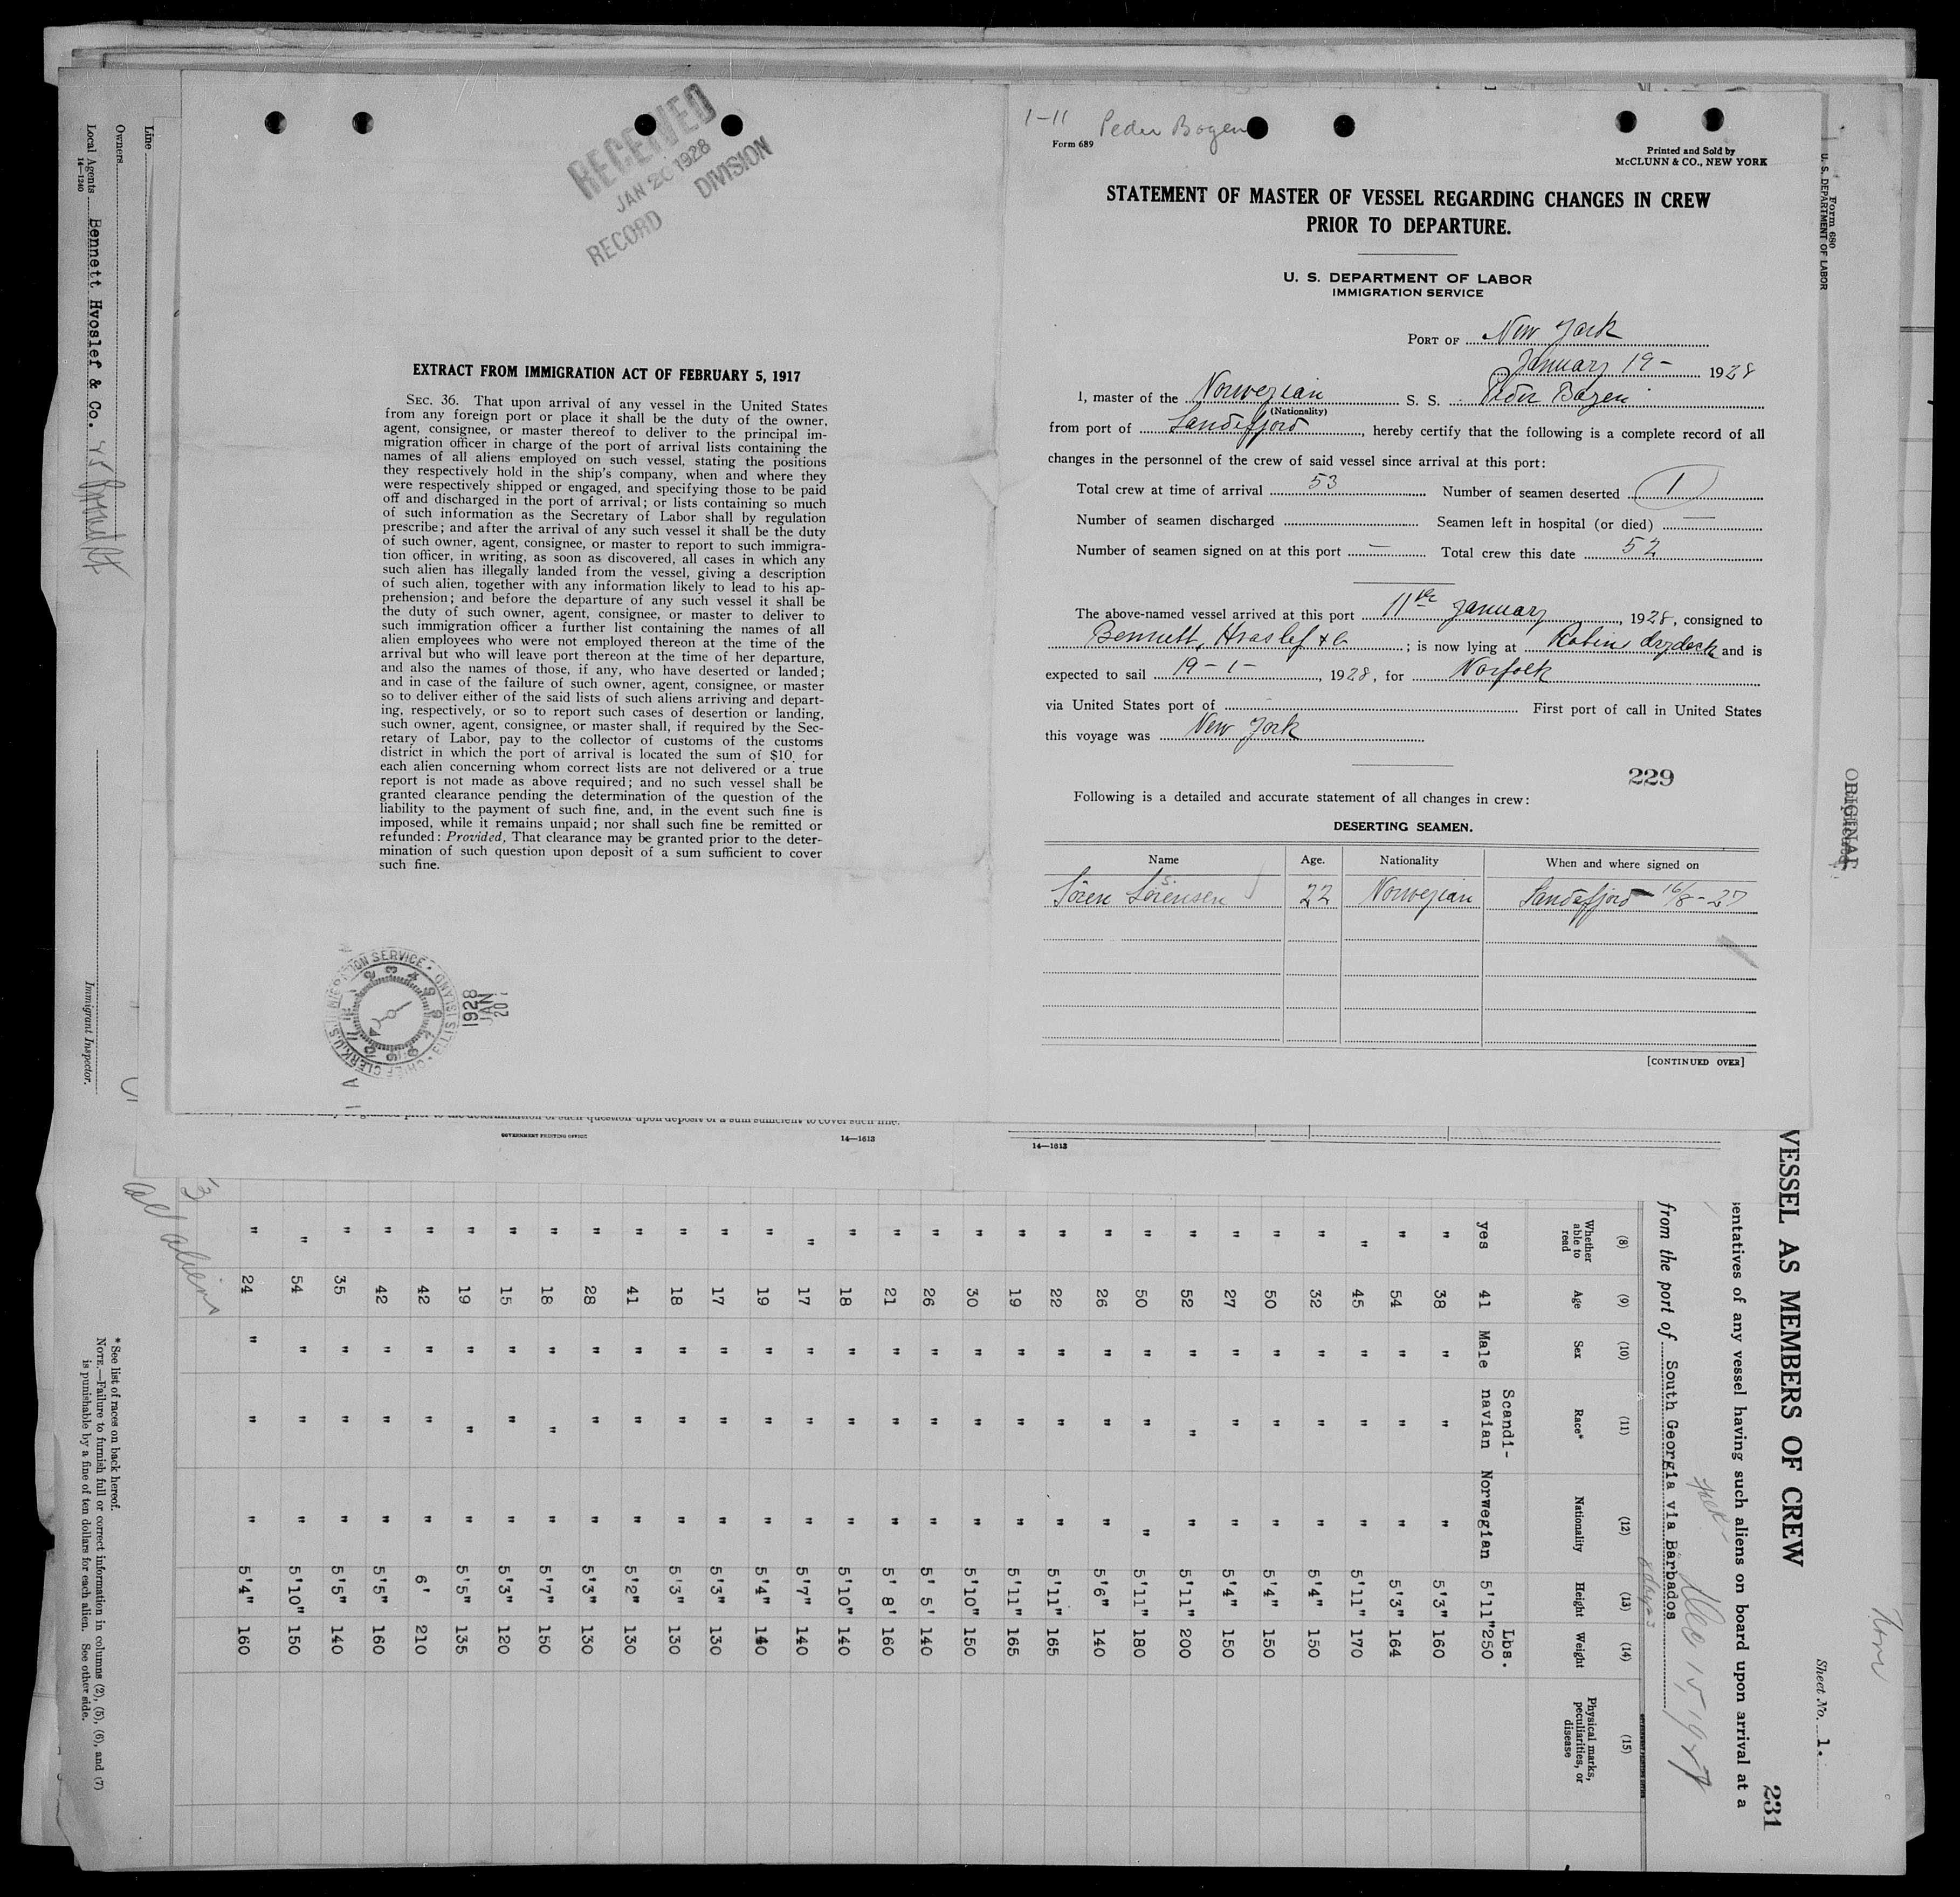 RECEIVED
JAN 20 1928
RECORD DIVISION
EXTRACT FROM IMMIGRATION ACT OF FEBRUARY 5, 1917
SEC. 36. That upon arrival of any vessel in the United States
from any foreign port or place it shall be the duty of the owner,
agent, consignee, or master thereof to deliver to the principal im-
migration officer in charge of the port of arrival lists containing the
names of all aliens employed on such vessel, stating the positions
they respectively hold in the ship's company, when and where they
were respectively shipped or engaged, and specifying those to be paid
off and discharged in the port of arrival; or lists containing so much
of such information as the Secretary of Labor shall by regulation
prescribe; and after the arrival of any such vessel it shall be the duty
of such owner, agent, consignee, or master to report to such immigra-
tion officer, in writing, as soon as discovered, all cases in which any
such alien has illegally landed from the vessel, giving a description
of such alien, together with any information likely to lead to his ap-
prehension; and before the departure of any such vessel it shall be
the duty of such owner, agent, consignee, or master to deliver to
such immigration officer a further list containing the names of all
alien employees who were not employed thereon at the time of the
arrival but who will leave port thereon at the time of her departure,
and also the names of those, if any, who have deserted or landed;
and in case of the failure of such owner, agent, consignee, or master
so to deliver either of the said lists of such aliens arriving and depart-
ing, respectively, or so to report such cases of desertion or landing,
such owner, agent, consignee, or master shall, if required by the Sec-
retary of Labor, pay to the collector of customs of the customs
district in which the port of arrival is located the sum of $10 for
each alien concerning whom correct lists are not delivered or a true
report is not made as above required; and no such vessel shall be
granted clearance pending the determination of the question of the
liability to the payment of such fine, and, in the event such fine is
imposed, while it remains unpaid; nor shall such fine be remitted or
refunded: Provided, That clearance may be granted prior to the deter-
mination of such question upon deposit of a sum sufficient to cover
such fine.
1928 JAN 20
1-11 Peder Bogen
Form 689
Printed and Sold by
McCLUNN & CO., NEW YORK
STATEMENT OF MASTER OF VESSEL REGARDING CHANGES IN CREW
PRIOR TO DEPARTURE.
U. S. DEPARTMENT OF LABOR
IMMIGRATION SERVICE
PORT OF New York
January 19- 1928
I, master of the Norwegian S. S. Peder Bogen
(Nationality)
from port of Sandefjord, hereby certify that the following is a complete record of all
changes in the personnel of the crew of said vessel since arrival at this port:
Total crew at time of arrival 53 Number of seamen deserted 1
Number of seamen discharged Seamen left in hospital (or died) —
Number of seamen signed on at this port — Total crew this date 52
The above-named vessel arrived at this port 11th January, 1928, consigned to
Bennett, Hvoslef & Co; is now lying at Robins drydock and is
expected to sail 19-1-, 1928, for Norfolk
via United States port of First port of call in United States
this voyage was New York
229
Following is a detailed and accurate statement of all changes in crew:
DESERTING SEAMEN.
Name Age. Nationality When and where signed on
Sören S. Sörensen 22 Norwegian Sandefjord 16/8-27
[CONTINUED OVER]
GOVERNMENT PRINTING OFFICE 14—1613
14—1613
Form 680
U. S. DEPARTMENT OF LABOR
ORIGINAL
Sheet No. 1.
231
VESSEL AS MEMBERS OF CREW
entatives of any vessel having such aliens on board upon arrival at a
from the port of South Georgia via Barbados
Dec 15 1927
8 days
(8) (9) (10) (11) (12) (13) (14) (15)
Whether able to read Age Sex Race* Nationality Height Weight Physical marks, peculiarities, or disease
Lbs.
yes 41 Male Scandi-navian Norwegian 5'11" 250
" 38 " " " 5'3" 160
" 54 " " " 5'3" 164
" 45 " " " 5'11" 170
" 32 " " " 5'4" 150
" 50 " " " 5'4" 150
" 27 " " " 5'4" 150
" 52 " " " 5'11" 200
" 50 " " " 5'11" 180
" 26 " " " 5'6" 140
" 22 " " " 5'11" 165
" 19 " " " 5'11" 165
" 30 " " " 5'10" 150
" 26 " " " 5' 5' 140
" 21 " " " 5' 8' 160
" 18 " " " 5'10" 140
" 17 " " " 5'7" 140
" 19 " " " 5'4" 140
" 17 " " " 5'3" 130
" 18 " " " 5'3" 130
" 41 " " " 5'2" 130
" 28 " " " 5'3" 130
" 18 " " " 5'7" 150
" 15 " " " 5'3" 120
" 19 " " " 5'5" 135
" 42 " " " 6' 210
" 42 " " " 5'5" 160
" 35 " " " 5'5" 140
" 54 " " " 5'10" 150
" 24 " " " 5'4" 160
all aliens
* See list of races on back hereof.
NOTE.—Failure to furnish full or correct information in columns (2), (5), (6), and (7)
is punishable by a fine of ten dollars for each alien. See other side.
Line
Owners
Local Agents Bennett Hvoslef & Co.
14—1240
Immigrant Inspector.